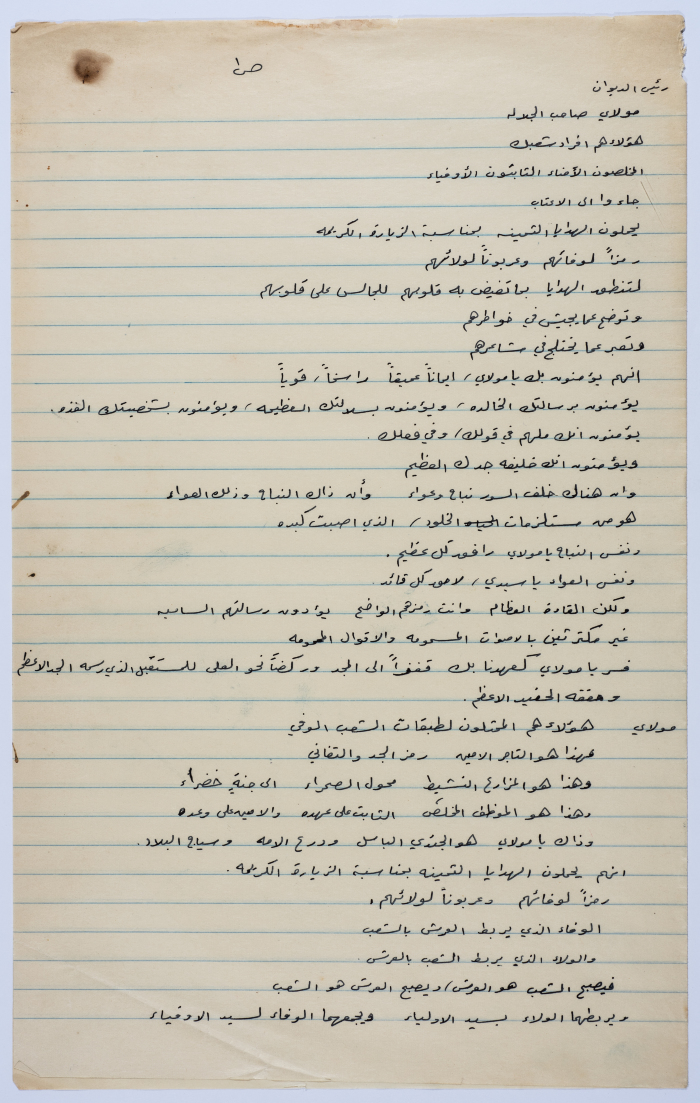 ص ١
رئيس الديوان
مولاي صاحب الجلاله
هؤلاء هم افراد شعبك
المخلصون الأمناء الثابتون الأوفياء
جاءوا الى الاعتاب
يحملون الهدايا الثمينه بمناسبة الزيارة الكريمه
رمزاً لوفائهم وعربوناً لولائهم
لتنطق الهدايا بما تفيض به قلوبهم للجالس على قلوبهم
وتوضح عما يجيش في خواطرهم
وتعبر عما يختلج في مشاعرهم
انهم يؤمنون بك يا مولاي، ايماناً عميقاً راسخاً، قوياً
يؤمنون برسالتك الخالده، ويؤمنون بسلالتك العظيمه، ويؤمنون بشخصيتك الفذه.
يؤمنون انك ملهم في قولك، وفي فعلك.
ويؤمنون انك خليفه جدك العظيم
وان هناك خلف السور نباح وعواء وأن ذاك النباح وذلك العواء
هو من مستلزمات الخلود، الذي اصبت كبده
ونفس النباح يا مولاي رافق كل عظيم.
ونفس العواء يا سيدي، لاحق كل قائد.
ولكن القادة العظام وانت رمزهم الواضح يؤدون رسالتهم الساميه
غير مكترثين بالاصوات المسمومه والاقوال المحمومه
فسر يا مولاي كعهدنا بك قفزاً الى المجد وركضاً نحو العلى للمستقبل الذي رسمه الجد الاعظم
وحققه الحفيد الاعظم.
مولاي هؤلاء هم الممثلون لطبقات الشعب الوفي
فهذا هو التاجر الامين رمز الجد والتفاني
وهذا هو المزارع النشيط محول الصحراء الى جنةٍ خضراء
وهذا هو الموظف المخلص الثابت على عهده والامين على وعده
وذاك يا مولاي هو الجندي الباسل ودرع الامه وسياج البلاد.
انهم يحملون الهدايا الثمينه بمناسبة الزيارة الكريمه.
رمزاً لوفائهم وعربوناً لولائهم.
الوفاء الذي يربط العرش بالشعب
والولاء الذي يربط الشعب بالعرش.
فيصبح الشعب هو العرش، ويصبح العرش هو الشعب
ويربطهما الولاء بسيد الاولياء ويجمعهما الوفاء لسيد الاوفياء